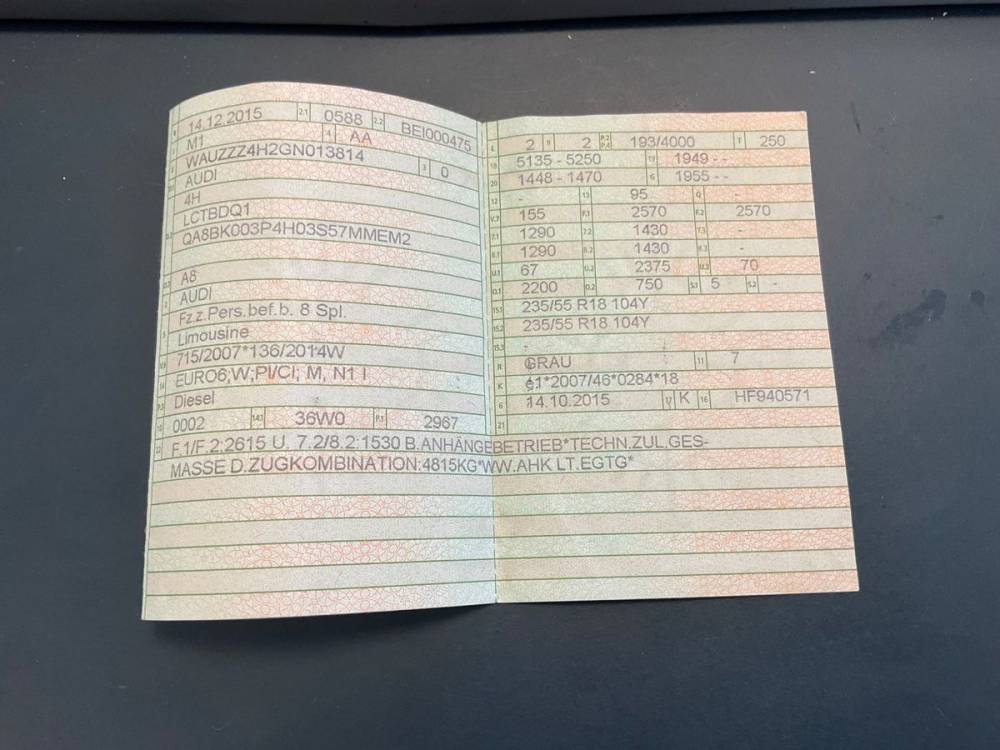 B 14.12.2015 2.1 0588 2.2 BEI000475
M1 4 AA
WAUZZZ4H2GN013814 3 0
AUDI
4H
LCTBDQ1
QA8BK003P4H03S57MMEM2
A8
AUDI
Fz.z.Pers.bef.b. 8 Spl.
Limousine
715/2007*136/2014W
EURO6;W;PI/CI; M, N1 I
Diesel
0002 14.1 36W0 P.1 2967
F.1/F.2:2615 U. 7.2/8.2:1530 B.ANHÄNGEBETRIEB*TECHN.ZUL.GES-
MASSE D.ZUGKOMBINATION:4815KG*WW.AHK LT.EGTG*
L 2 9 2 P.2 P.4 193/4000 T 250
18 5135 - 5250 19 1949 - -
20 1448 - 1470 G 1955 - -
12 - 13 95 Q -
V.7 155 F.1 2570 F.2 2570
7.1 1290 7.2 1430 7.3 -
8.1 1290 8.2 1430 8.3 -
U.1 67 U.2 2375 U.3 70
O.1 2200 O.2 750 S.1 5 S.2 -
15.1 235/55 R18 104Y
15.2 235/55 R18 104Y
15.3 -
R GRAU 11 7
K e1*2007/46*0284*18
6 14.10.2015 17 K 16 HF940571
21